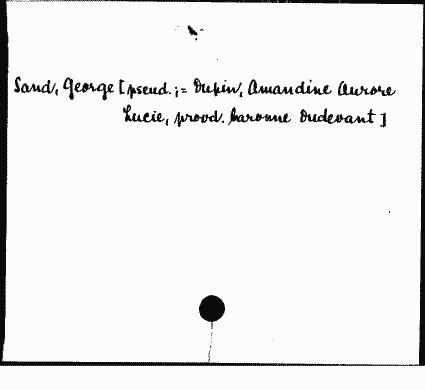 Sand, George [pseud.; = Dupin, Amandine Aurore
Lucie, provd. baronne Dudevant]